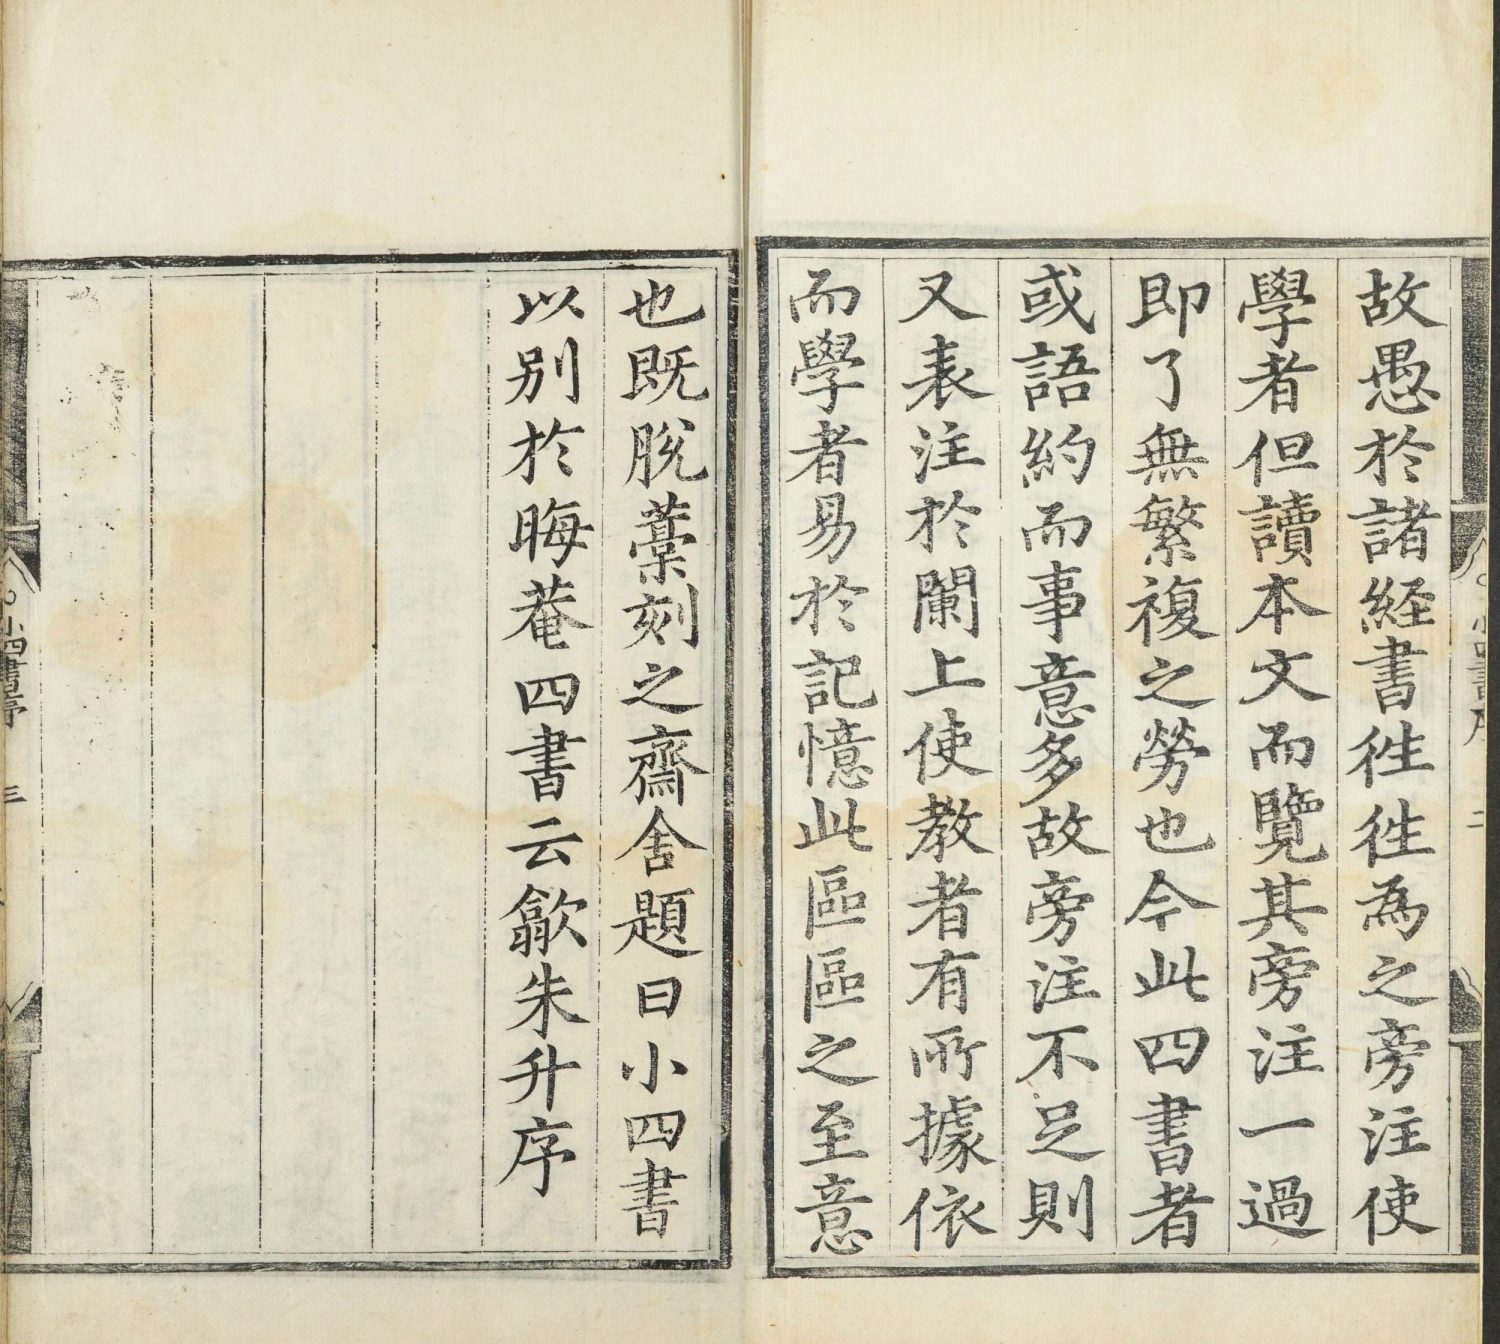 故愚於諸經書徃徃為之旁注使
學者但讀本文而覽其旁注一過
即了無繁複之勞也今此四書者
或語約而事意多故旁注不足則
又表注於闌上使教者有所據依
而學者易於記憶此區區之至意
小四書序 二
也既脫藁刻之齋舍題曰小四書
以别於晦菴四書云歙朱升序
小四書序 三